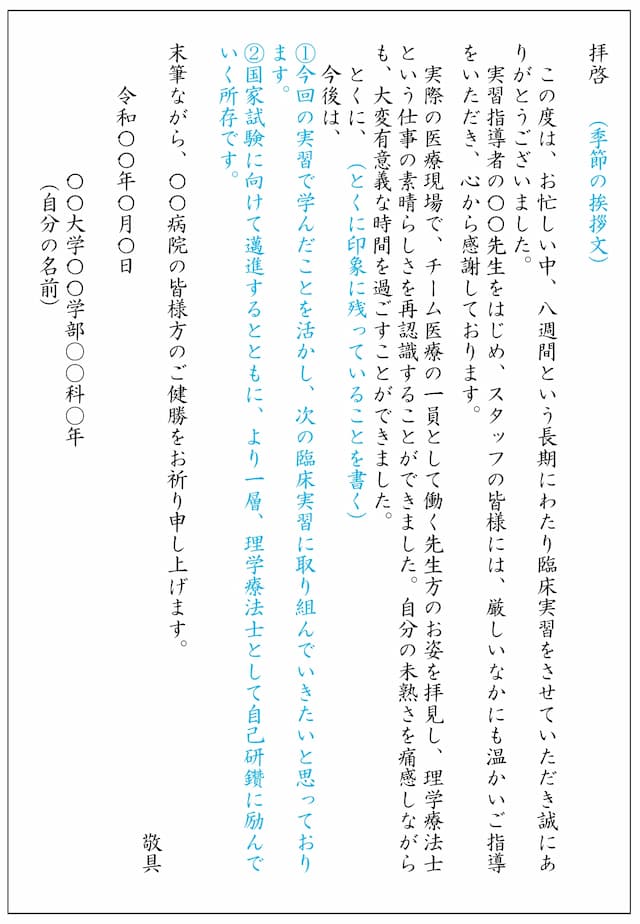 拝啓　（季節の挨拶文）
この度は、お忙しい中、八週間という長期にわたり臨床実習をさせていただき誠にあ
りがとうございました。
実習指導者の〇〇先生をはじめ、スタッフの皆様には、厳しいなかにも温かいご指導
をいただき、心から感謝しております。
実際の医療現場で、チーム医療の一員として働く先生方のお姿を拝見し、理学療法士
という仕事の素晴らしさを再認識することができました。自分の未熟さを痛感しながら
も、大変有意義な時間を過ごすことができました。
とくに、（とくに印象に残っていることを書く）
今後は、
①今回の実習で学んだことを活かし、次の臨床実習に取り組んでいきたいと思っており
ます。
②国家試験に向けて邁進するとともに、より一層、理学療法士として自己研鑽に励んで
いく所存です。
末筆ながら、〇〇病院の皆様方のご健勝をお祈り申し上げます。
敬具
令和〇〇年〇月〇日
〇〇大学〇〇学部〇〇科〇年
（自分の名前）